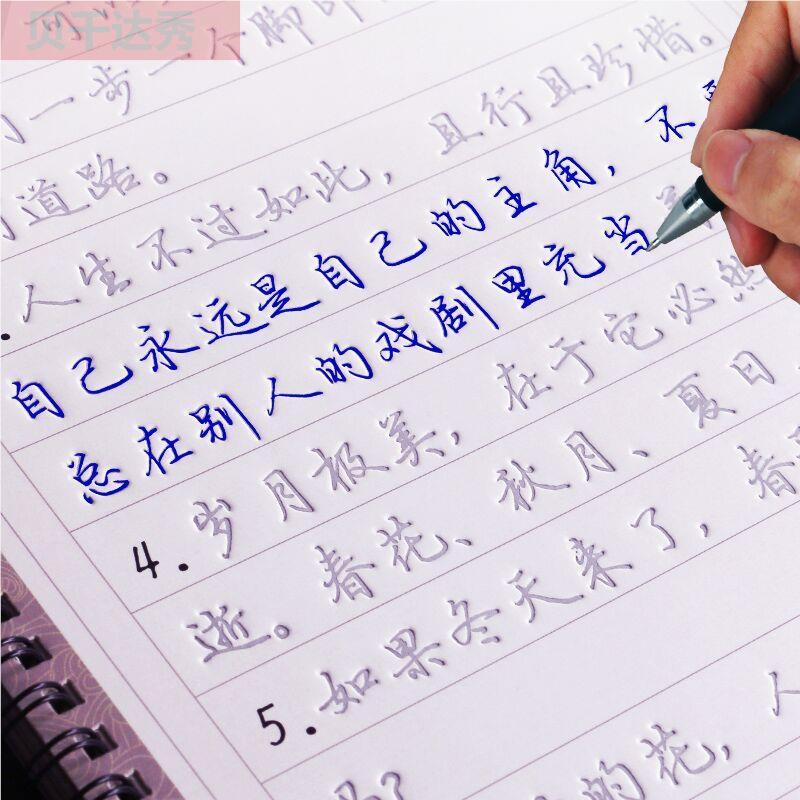 贝千达秀
一步一个脚印
道路。
人生不过如此，且行且珍惜。
自己永远是自己的主角，不
总在别人的戏剧里充当
4.岁月极美，在于它必然
逝。春花、秋月、夏日、
5.如果冬天来了，春
的花，人